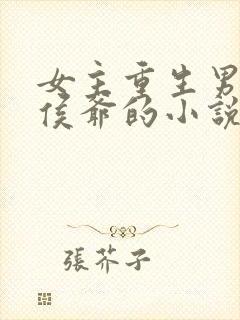 女主重生男
侯爺的小說
張芥子